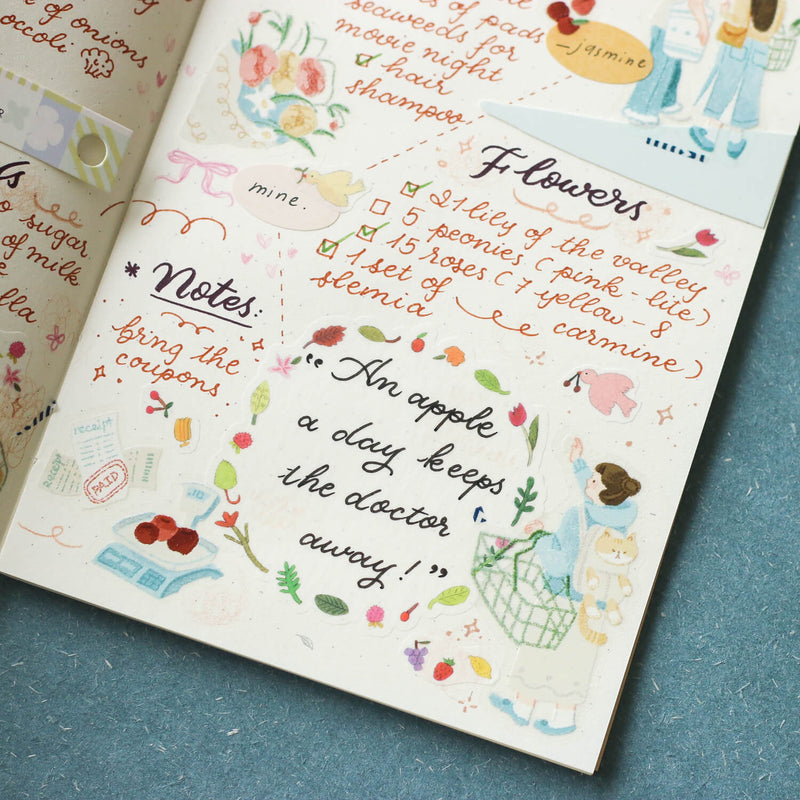 of onions
occoli
sugar
of milk
of pads
seaweeds for
movie night
hair
shampoo
-jasmine
mine.
Flowers
21 lily of the valley
5 peonies ( pink - lite )
15 roses ( 7 yellow - 8
carmine )
1 set of
slemia
* Notes:
bring the
coupons
receipt
receipt
PAID
"An apple
a day keeps
the doctor
away!"